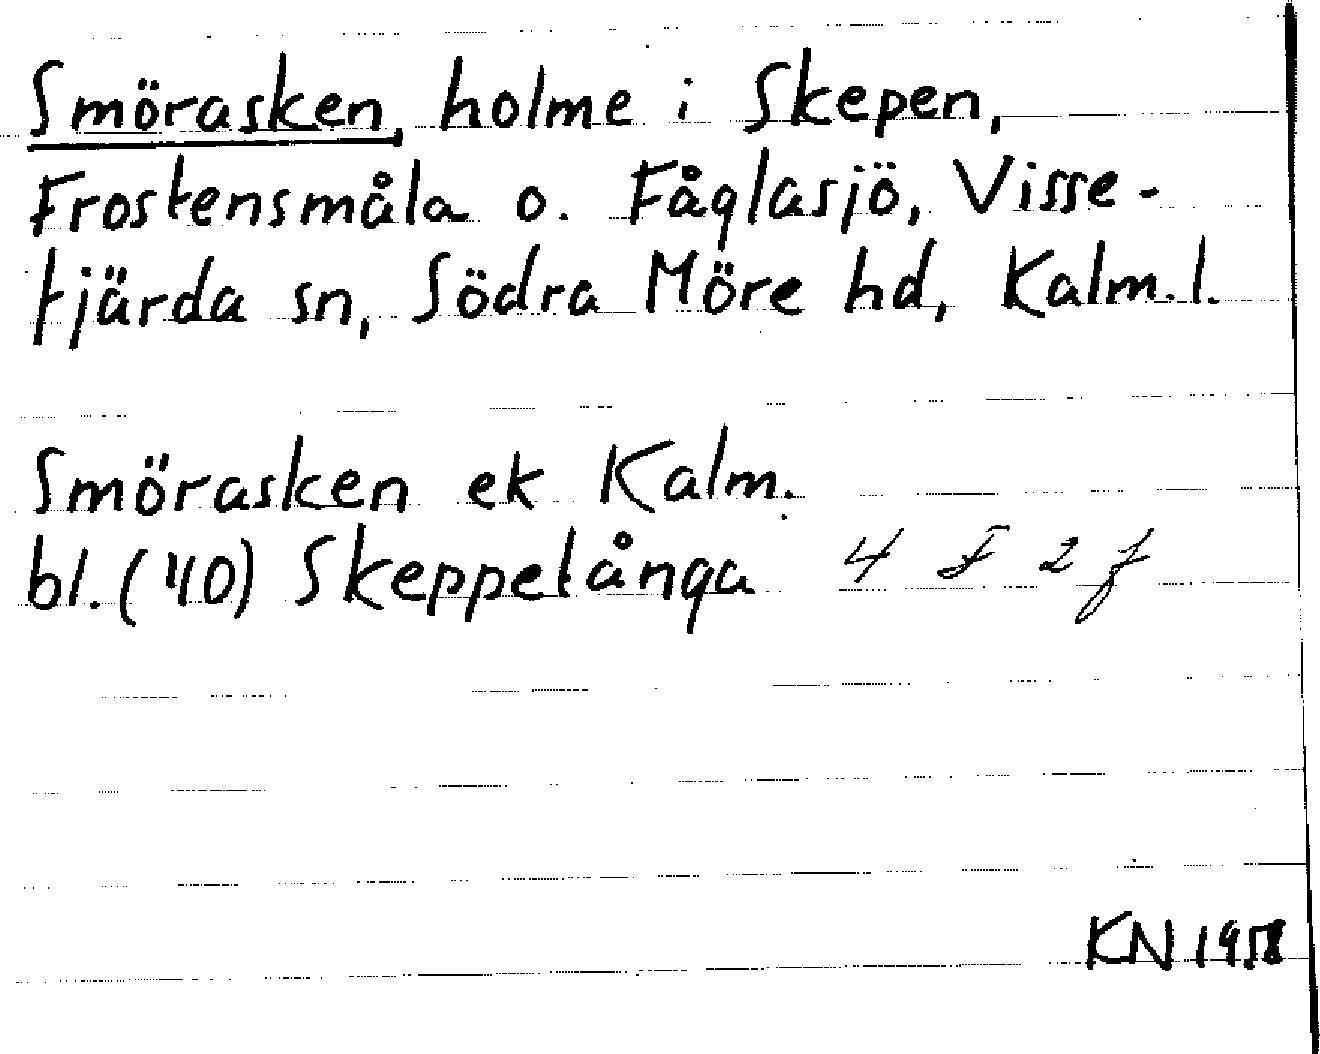 Smörasken, holme i Skepen,
Frostensmåla o. Fåglasjö, Visse-
fjärda sn, Södra Möre hd, Kalm. l.
Smörasken ek Kalm.
bl. (40) Skeppetånga 4 F 2 f
KN 1958